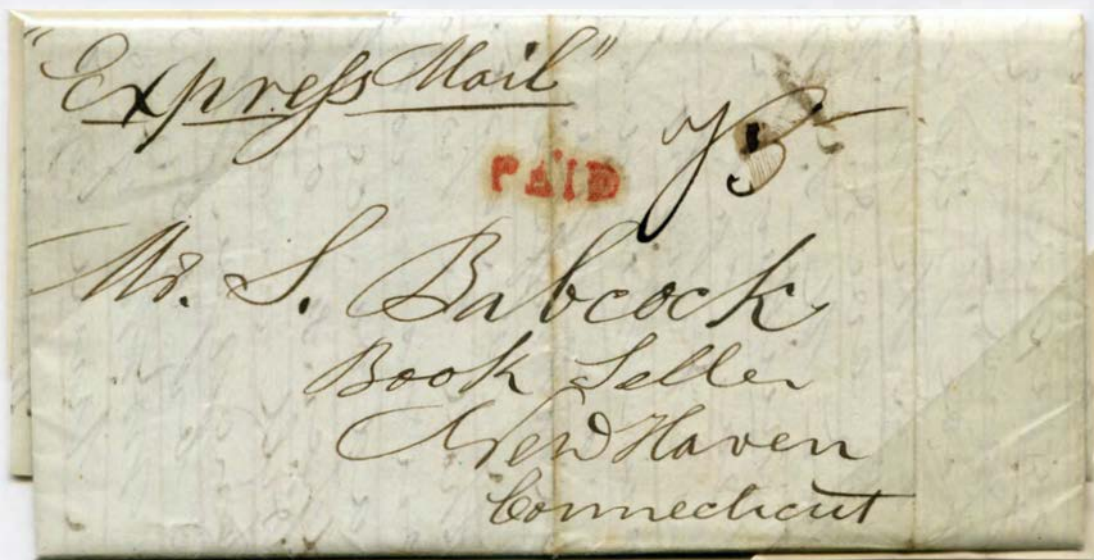 "Express Mail"
75
PAID
Mr. S. Babcock
Book Seller
New Haven
Connecticut